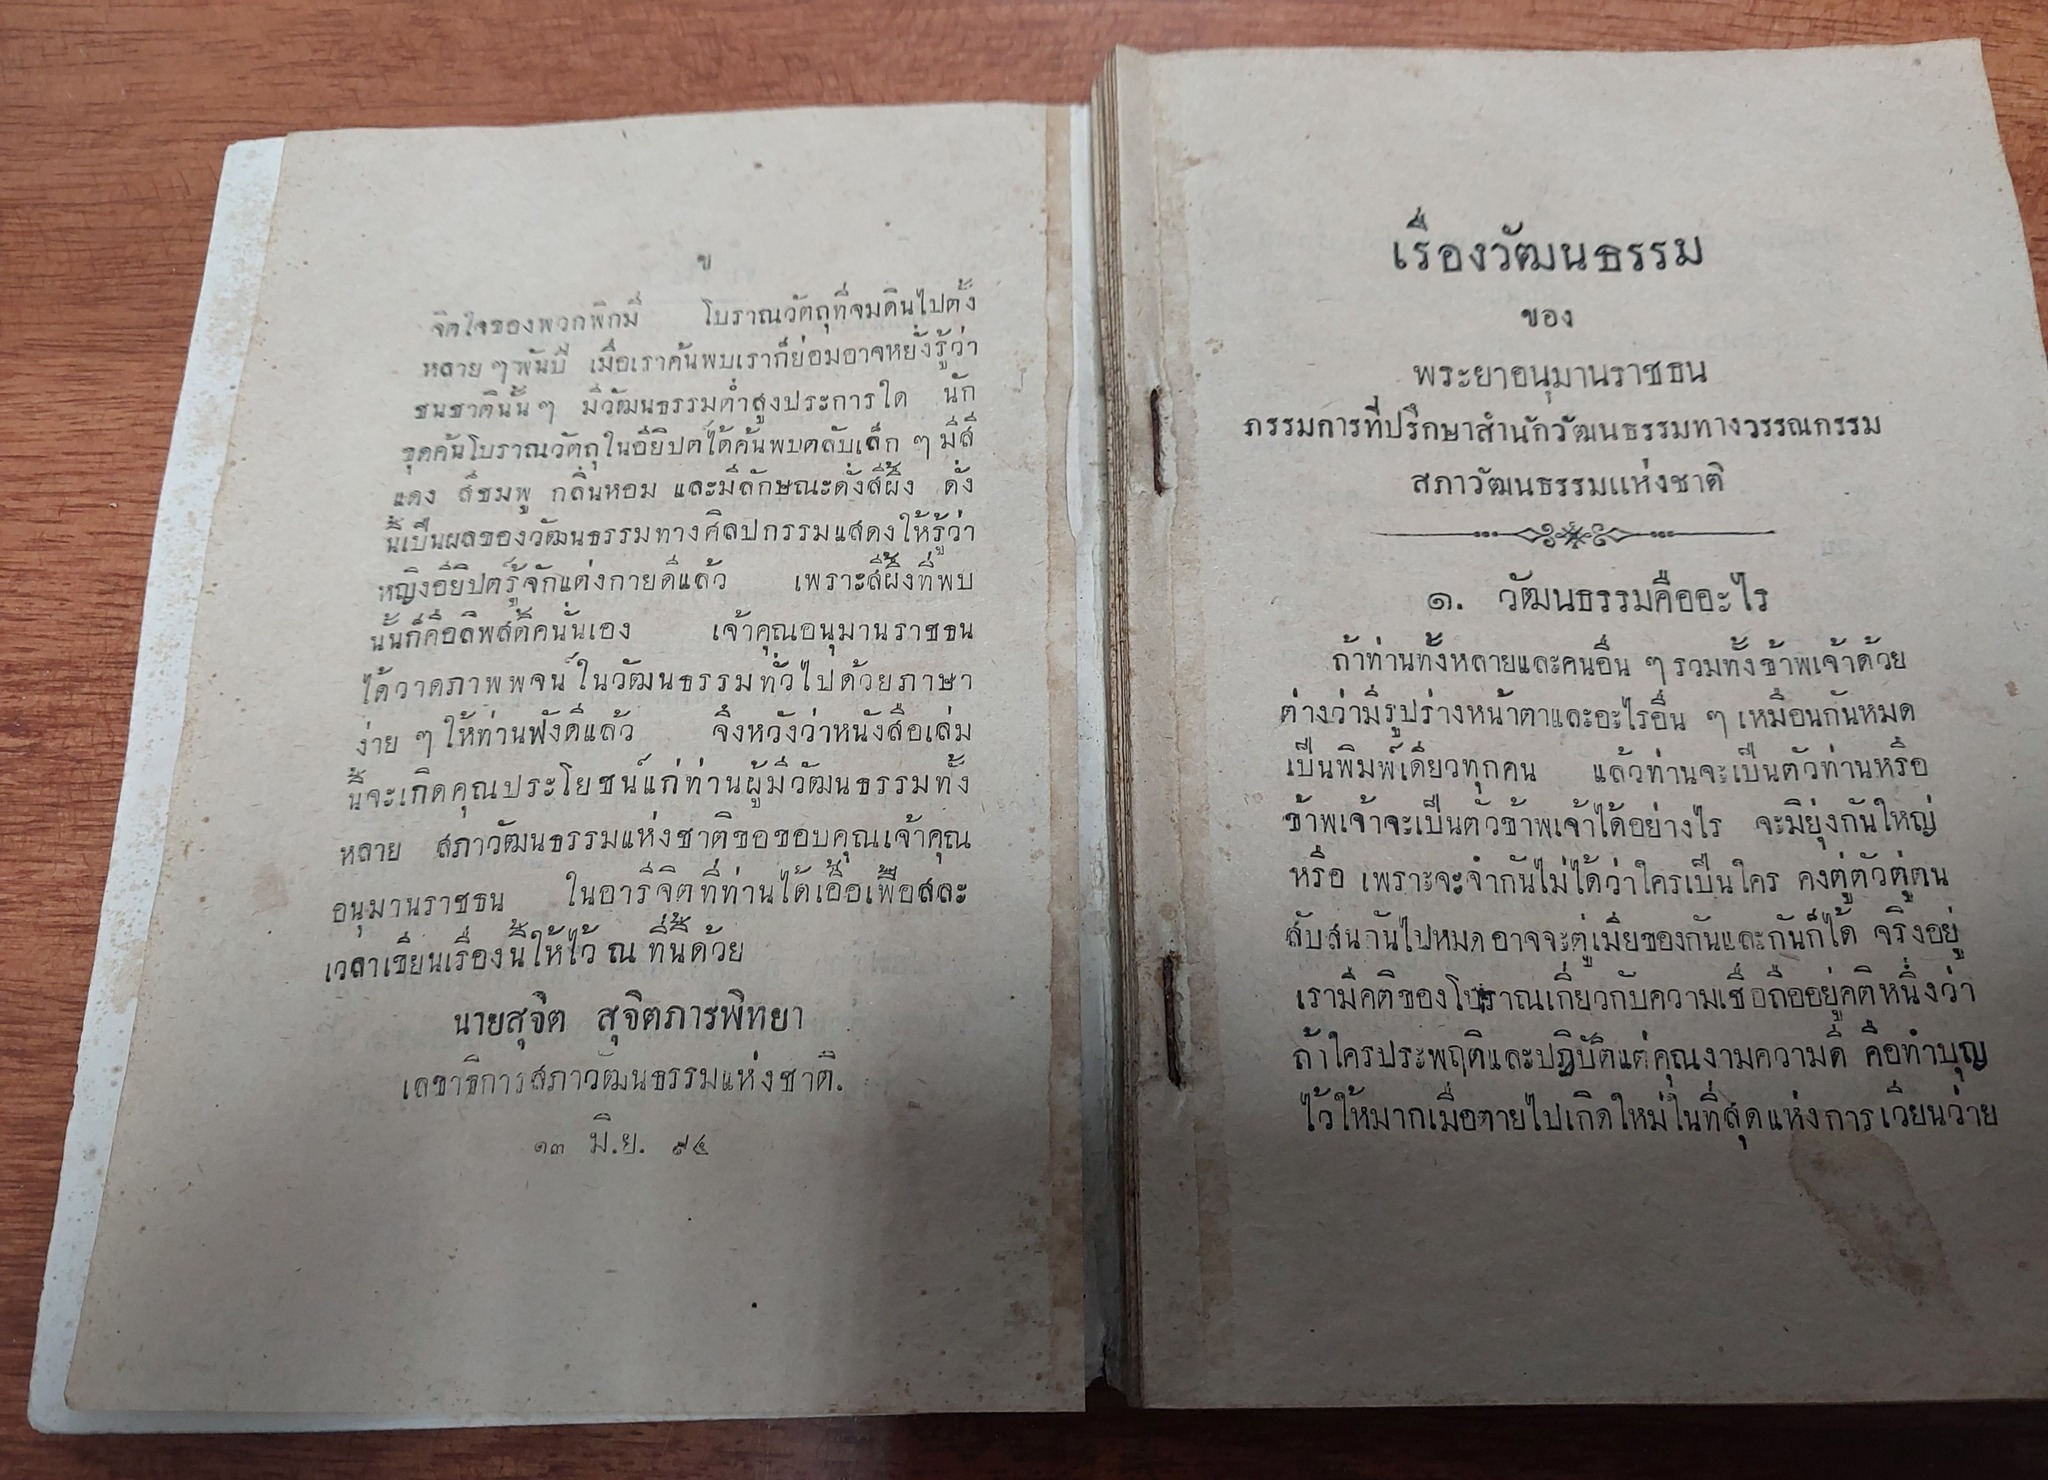 ข
จิตใจของพวกพิกมี โบราณวัตถุที่จมดินไปตั้ง
หลาย ๆ พันปี เมื่อเราค้นพบเราก็ย่อมอาจหยั่งรู้ว่า
ชนชาตินั้น ๆ มีวัฒนธรรมต่ำสูงประการใด นัก
ขุดค้นโบราณวัตถุในอียิปต์ได้ค้นพบตลับเล็ก ๆ มีสี
แดง สีชมพู กลิ่นหอม และมีลักษณะดั่งสีผึ้ง ดั่ง
นี้เป็นผลของวัฒนธรรมทางศิลปกรรมแสดงให้รู้ว่า
หญิงอียิปต์รู้จักแต่งกายดีแล้ว เพราะสีผึ้งที่พบ
นั้นก็คือลิพสติคนั่นเอง เจ้าคุณอนุมานราชธน
ได้วาดภาพพจน์ในวัฒนธรรมทั่วไปด้วยภาษา
ง่าย ๆ ให้ท่านฟังดีแล้ว จึงหวังว่าหนังสือเล่ม
นี้จะเกิดคุณประโยชน์แก่ท่านผู้มีวัฒนธรรมทั้ง
หลาย สภาวัฒนธรรมแห่งชาติขอขอบคุณเจ้าคุณ
อนุมานราชธน ในอารีจิตที่ท่านได้เอื้อเฟื้อสละ
เวลาเขียนเรื่องนี้ให้ไว้ ณ ที่นี้ด้วย
นายสุจิต สุจิตภารพิทยา
เลขาธิการสภาวัฒนธรรมแห่งชาติ.
๑๓ มิ.ย. ๙๔
เรื่องวัฒนธรรม
ของ
พระยาอนุมานราชธน
กรรมการที่ปรึกษาสำนักวัฒนธรรมทางวรรณกรรม
สภาวัฒนธรรมแห่งชาติ
๑. วัฒนธรรมคืออะไร
ถ้าท่านทั้งหลายและคนอื่น ๆ รวมทั้งข้าพเจ้าด้วย
ต่างว่ามีรูปร่างหน้าตาและอะไรอื่น ๆ เหมือนกันหมด
เป็นพิมพ์เดียวทุกคน แล้วท่านจะเป็นตัวท่านหรือ
ข้าพเจ้าจะเป็นตัวข้าพเจ้าได้อย่างไร จะมิยุ่งกันใหญ่
หรือ เพราะจะจำกันไม่ได้ว่าใครเป็นใคร คงตู่ตัวตู่ตน
สับสนกันไปหมด อาจจะตู่เมียของกันและกันก็ได้ จริงอยู่
เรามีคติของโบราณเกี่ยวกับความเชื่อถืออยู่คติหนึ่งว่า
ถ้าใครประพฤติและปฏิบัติแต่คุณงามความดี คือทำบุญ
ไว้ให้มากเมื่อตายไปเกิดใหม่ในที่สุดแห่งการเวียนว่าย